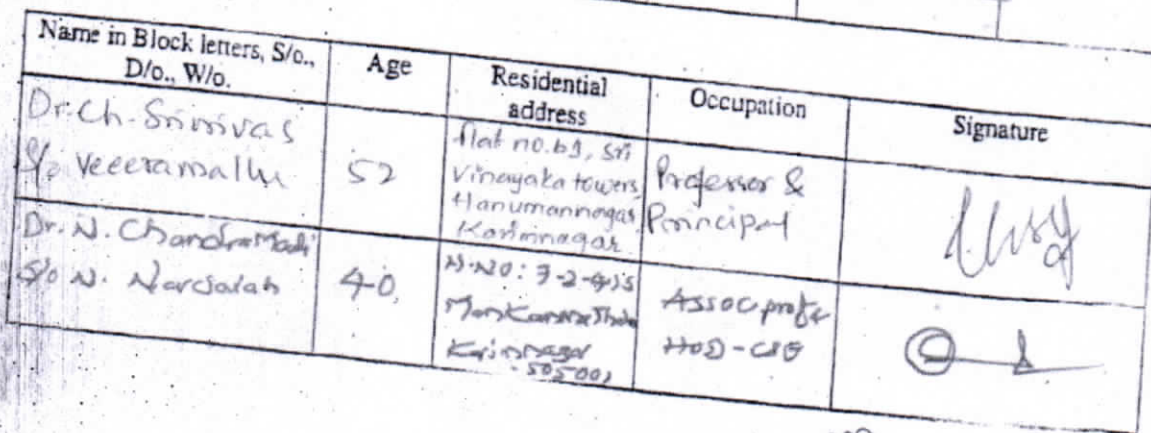 Name in Block letters, S/o.,
D/o., W/o.
Age
Residential
address
Occupation
Signature
Dr. Ch. Srinivas
S/o Veeeramallu
52
flat no. b1, Sri
Vinayaka towers,
Hanumannagar,
Karimnagar
Professor &
Principal
Dr. N. Chandra
S/o N. Narsaiah
40
H.NO: 7-2-
Karimnagar
-505001
Assoc prof &
HOD-CSE